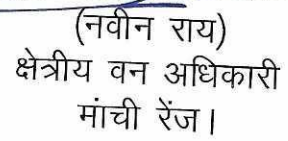 (नवीन राय)
क्षेत्रीय वन अधिकारी
मांची रेंज।